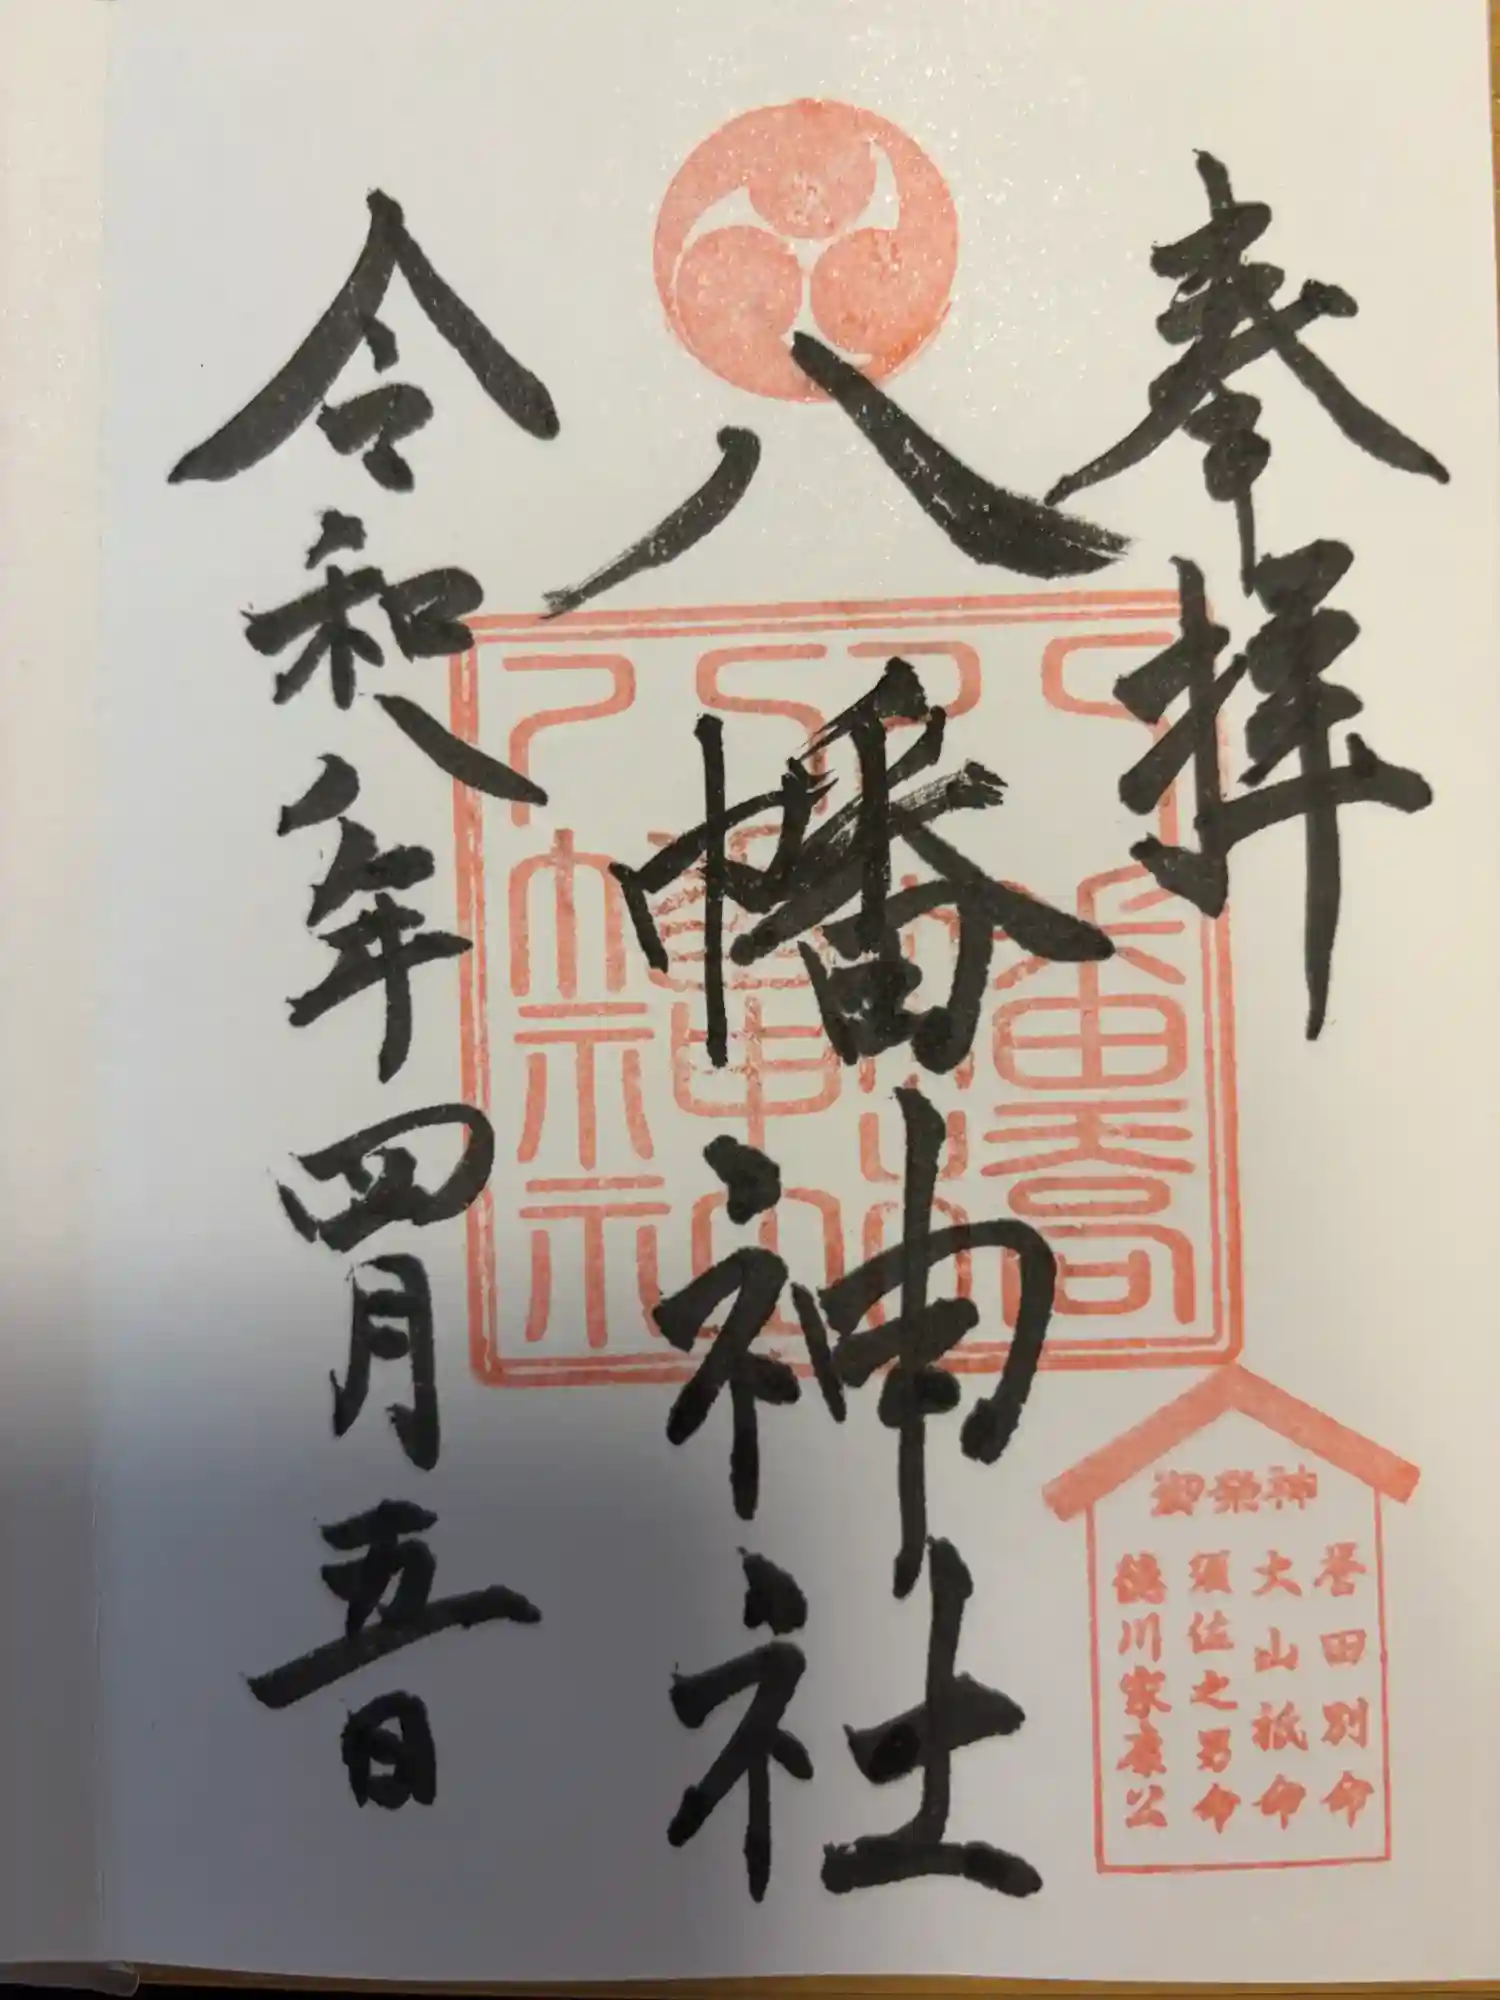 奉拝
八幡神社
令和八年四月五日
御祭神
誉田別命
大山祇命
須佐之男命
徳川家康公